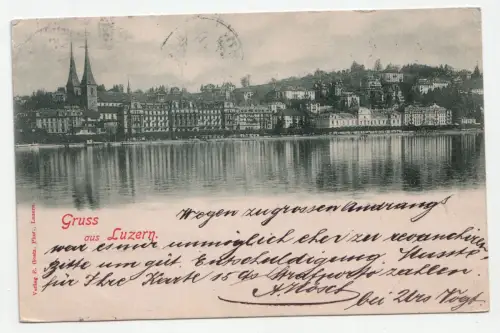 Gruss
aus Luzern.
Wegen zu grossen Andrangs
war es mir unmöglich eher zu revanchieren
bitte um güt. Entschuldigung. Musste
für Ihre Karte 15 cts Strafporto zahlen.
A. Hösct
bei Vogt
Verlag E. Goetz, Phot., Luzern.